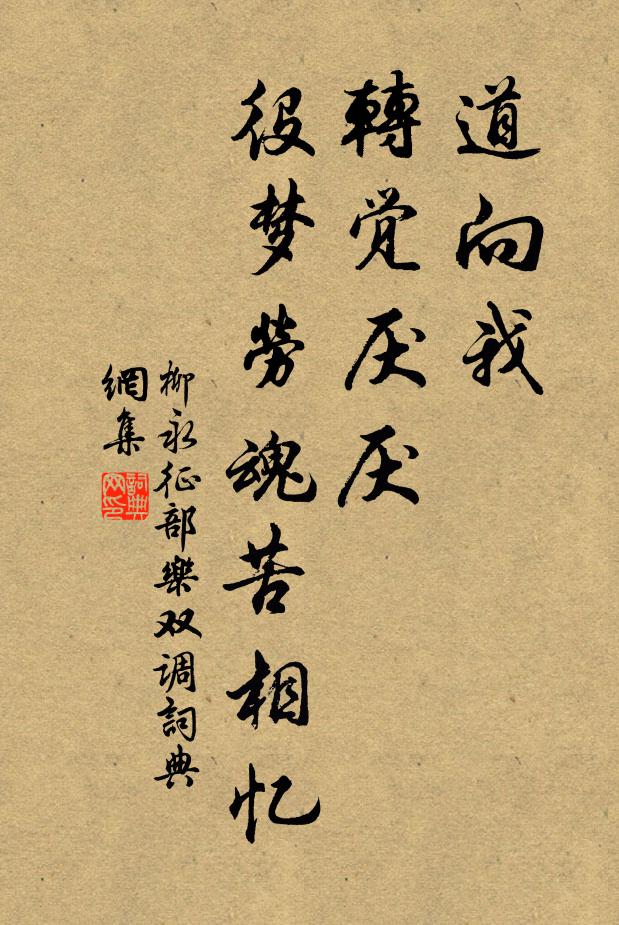 道向我
轉觉厌厌
役梦劳魂苦相忆
柳永征部樂双调詞典
網集
詞典网印